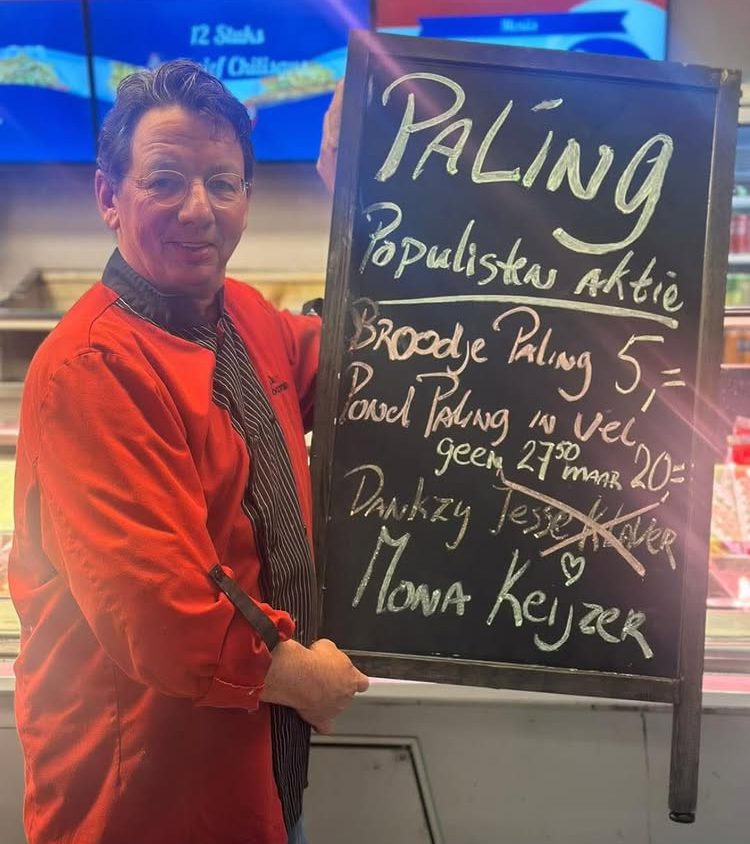 12 Stuks
Menu's
PALING
Populisten AKtie
BROOdje Paling 5,=
Pond PALING IN Vel
geen 27⁵⁰ MAAR 20,=
DANKZY Jesse KLAVER
MONA Keijzer